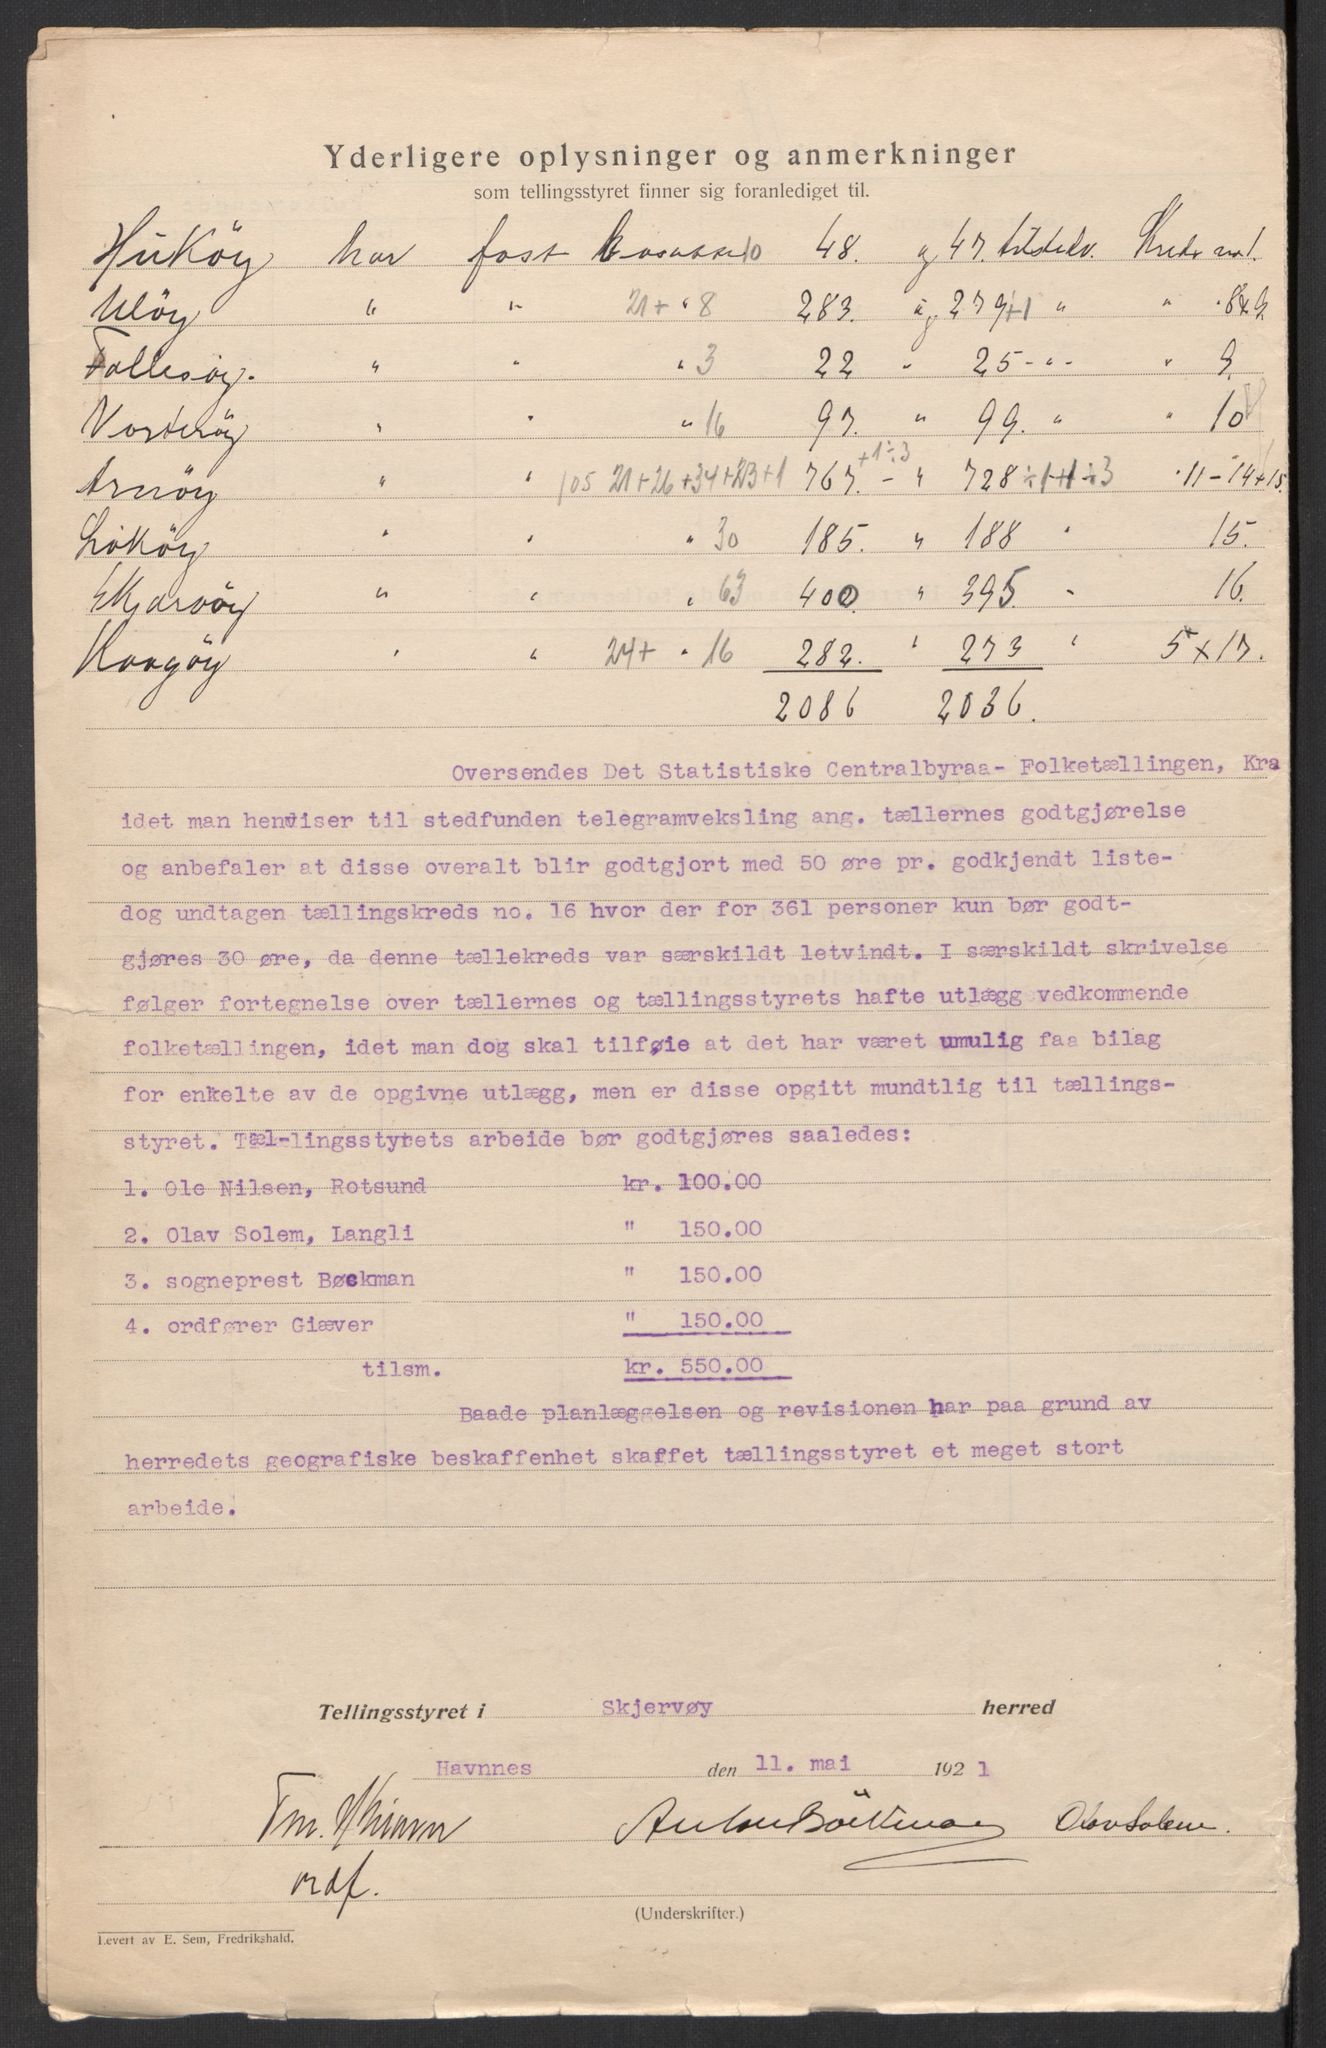 Yderligere oplysninger og anmerkninger
som tellingsstyret finner sig foranlediget til.
Hukøy har fast 10 48. og 47. tilstedev. Kreds no 1.
Uløy " " 21+ " 8 283. " og 279+1 " " " 8+9
Follesøy. " " " 3 22 " 25 - " - " 9.
Vorterøy " " " 16 97. " 99. " " 10
Arnøy " " 105 21+26+34+23+1 767. +1÷3 - " 728÷1+1÷3 " 11-14+15.
Lökøy " " " 30 185. " 188 " 15.
Skjærvöy " " " 63 400. " 395. " 16.
Kaagöy " " 24+ " 16 282. " 273 " 5+17.
2086 2036.
Oversendes Det Statistiske Centralbyraa- Folketællingen, Kra
idet man henviser til stedfunden telegramveksling ang. tællernes godtgjørelse
og anbefaler at disse overalt blir godtgjort med 50 øre pr. godkjendt liste-
dog undtagen tællingskreds no. 16 hvor der for 361 personer kun bør godt-
gjøres 30 øre, da denne tællekreds var særskildt letvindt. I særskildt skrivelse
følger fortegnelse over tællernes og tællingsstyrets hafte utlægg vedkommende
folketællingen, idet man dog skal tilføie at det har været umulig faa bilag
for enkelte av de opgivne utlægg, men er disse opgitt mundtlig til tællings-
styret. Tæl-lingsstyrets arbeide bør godtgjøres saaledes:
1. Ole Nilsen, Rotsund kr. 100.00
2. Olav Solem, Langli " 150.00
3. sogneprest Bøckman " 150.00
4. ordfører Giæver " 150.00
tilsm. kr. 550.00
Baade planlæggelsen og revisionen har paa grund av
herredets geografiske beskaffenhet skaffet tællingsstyret et meget stort
arbeide.
Tellingsstyret i Skjervøy herred
Havnnes den 11. mai 1921
Anton Böckman Olav Solem.
ordf.
(Underskrifter.)
Levert av E. Sem, Fredrikshald.